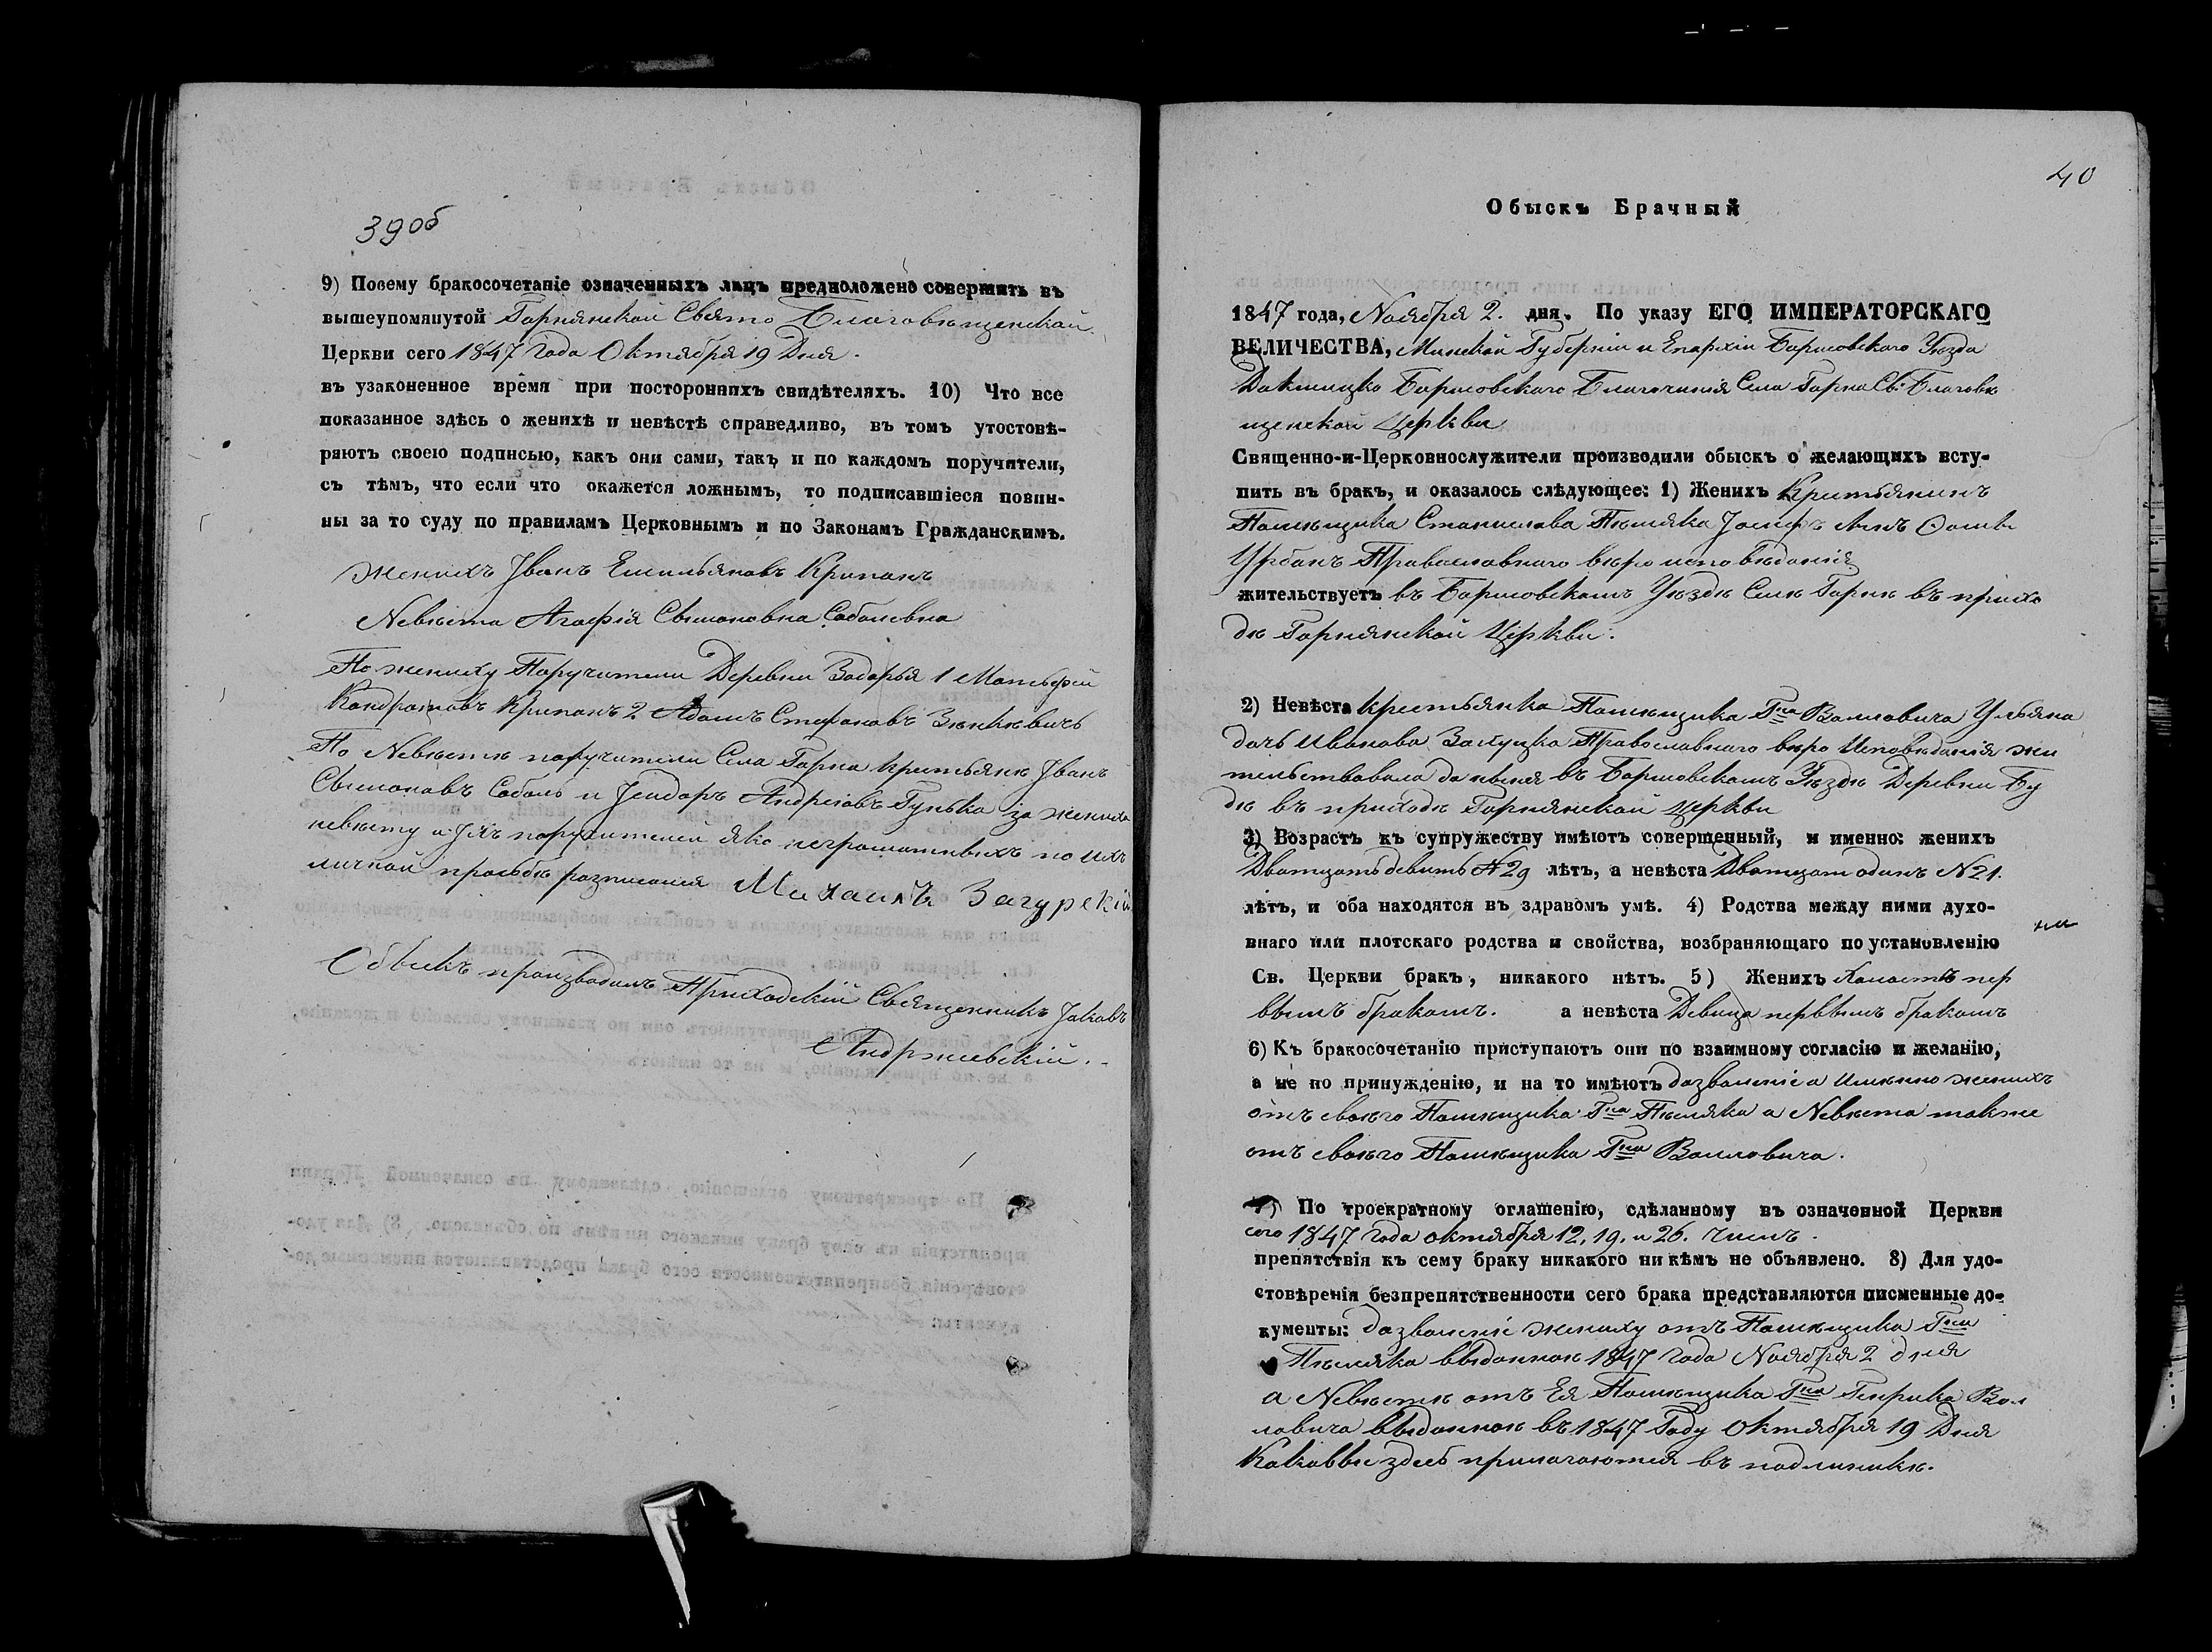 39об
9) Посему бракосочетаніе означенныхъ лицъ предположено совершить въ
вышеупомянутой Горнянской Свято Благовѣщенской
Церкви сего 1847 Года Октября 19 Дня.
въ узаконенное время при постороннихъ свидѣтеляхъ. 10) Что все
показанное здѣсь о женихѣ и невѣстѣ справедливо, въ томъ утостовѣ-
ряютъ своею подписью, какъ они сами, такъ и по каждомъ поручители,
съ тѣмъ, что если что окажется ложнымъ, то подписавшіеся повин-
ны за то суду по правиламъ Церковнымъ и по Законамъ Гражданскимъ.
Женихъ Іванъ Емильяновъ Крипанъ
Невѣста Агафія Сымоновна Соболевна
По жениху Поручители Деревни Задорья 1 Матьфей
Кондратовъ Крипанъ 2 Адамъ Стефановъ Зѣнкѣвичъ
По Невѣстѣ поручители Села Горна крестьянѣ Іванъ
Сымоновъ Соболь и Андреіовъ Гунька за жениха
невѣсту и Іхъ поручителей яко неграмотныхъ по ихъ
личной прозьбѣ розписался Михаилъ Загурскій
Обыскъ производилъ Приходскій Священникъ Іаковъ
Андржиевскій.
40
Обыскъ Брачный
1847 года, Ноября 2. дня. По указу ЕГО ИМПЕРАТОРСКАГО
ВЕЛИЧЕСТВА, Минской Губерніи и Епархіи Борисовского Уѣзда
Докшицко Борисовскаго Благочинія Села Горна Св: Благовѣ
щенской Церкви
Священно-и-Церковнослужители производили обыскъ о желающихъ всту-
пить въ бракъ, и оказалось слѣдующее: 1) Женихъ Крестьянинъ
Помѣщика Станислава Іосифъ
Урбанъ Православнаго вѣроисповѣданія
жительствуетъ въ Борисовскомъ Уѣздѣ Селѣ Горнѣ въ прихо
дѣ Горнянской Церкви.
2) Невѣста крестьянка Помѣщика Гна Воловича Ульяна
дочь Иванова Православнаго вѣро Исповѣданія жи
тельствовала до нынѣ въ Борисовскомъ Уѣздѣ Деревни Бу
дѣ въ приходѣ Горнянской церкви
3) Возрастъ къ супружеству имѣютъ совершенный, и именно: женихъ
Дватцатьдевять N 29 лѣтъ, а невѣста Дватцат одинъ N 21.
лѣтъ, и оба находятся въ здравомъ умѣ. 4) Родства между ними духо-
внаго или плотскаго родства и свойства, возбраняющаго по установленію
Св. Церкви бракъ, никакого нѣтъ. 5) Женихъ Холостъ пер
вымъ бракомъ. а невѣста Девица первымъ бракомъ
6) Къ бракосочетанію приступаютъ они по взаимному согласію и желанію,
а не по принужденію, и на то имѣютъ дозволеніе а имѣнно женихъ
отъ своѣго Помѣщика Гна а Невѣста также
отъ своѣго Помѣщика Гна Воловича.
7) По троекратному оглашенію, сдѣланному въ означенной Церкви
сего 1847 года октября 12, 19. и 26. числъ.
препятствія къ сему браку никакого ни кѣмъ не объявлено. 8) Для удо-
стовѣренія безпрепятственности сего брака представляются писменные до-
кументы: дозволеніе жениху отъ Помѣщика Гна
выданноѣ 1847 года Ноября 2 дня
а Невѣстѣ отъ Ея Помѣщика Гна Генрика Вол
ловича выданноѣ въ 1847 Году Октября 19 Дня
Каковыи здесь прилагаются въ подлинникѣ.